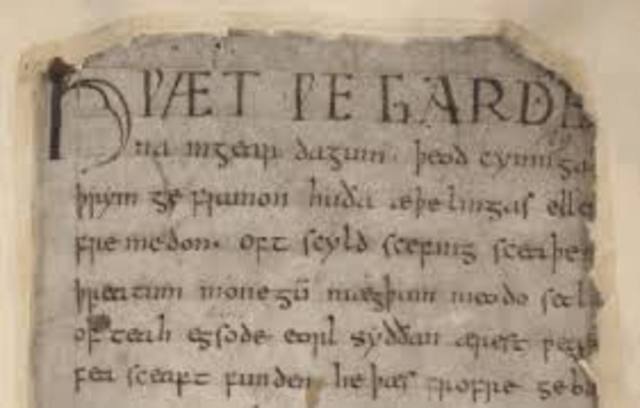 HǷÆT ǷE GARDE
na ingear dagum. þeod cyninga
þrym ge frunon huða æþelingas elle
fre medon. oft scyld scefing sceaþe
þreatum monegū mægþum meodo setla
of teah egsode eorl syððan ærest ƿear
fea sceaft funden he þæs frofre geba